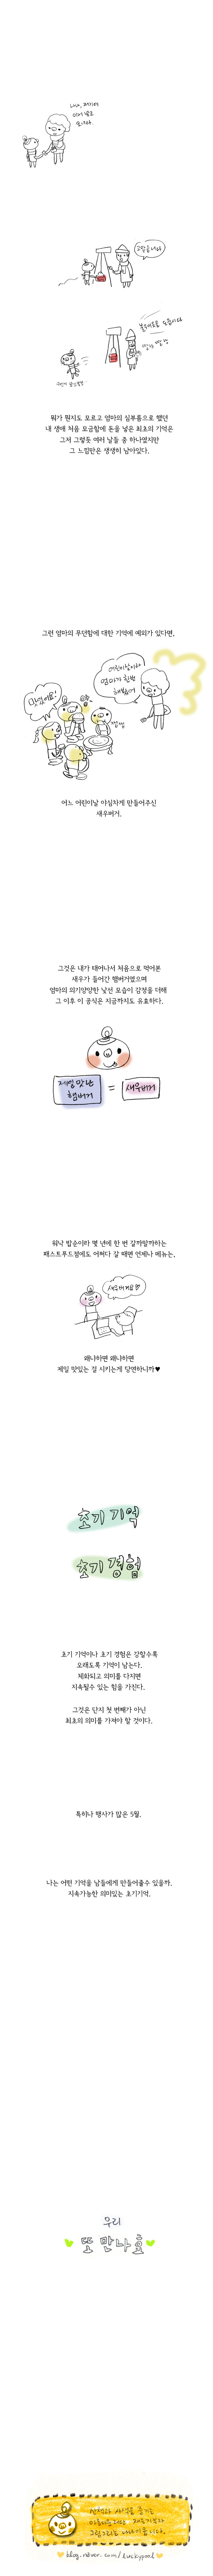 고맙습니다
뭐가 뭔지도 모르고 엄마의 심부름으로 했던
내 생애 처음 모금함에 돈을 넣은 최초의 기억은
그저 그렇듯 여러 날들 중 하나였지만
그 느낌만은 생생히 남아있다.
그런 엄마의 무덤함에 대한 기억에 예외가 있다면,
어린이날이라
엄마가 한번
해봤어
맛있어요!
냠냠
어느 어린이날 야심차게 만들어주신
새우버거.
그것은 내가 태어나서 처음으로 먹어본
새우가 들어간 햄버거였으며
엄마의 의기양양한 낯선 모습이 감정을 더해
그 이후 이 공식은 지금까지도 유효하다.
제일 맛난
햄버거
=
새우버거
워낙 밥순이라 몇 년에 한 번 갈까말까하는
패스트푸드점에도 어쩌다 갈 때면 언제나 메뉴는,
새우버거요♡
왜냐하면 왜냐하면
제일 맛있는 걸 시키는게 당연하니까♥
초기 기억
초기 경험
초기 기억이나 초기 경험은 강할수록
오래도록 기억이 남는다.
체화되고 의미를 다지면
지속될수 있는 힘을 가진다.
그것은 단지 첫 번째가 아닌
최초의 의미를 가져야 할 것이다.
특히나 행사가 많은 5월.
나는 어떤 기억을 남들에게 만들어줄수 있을까.
지속가능한 의미있는 초기기억.
우리
또 만나요
blog.naver.com/luckypool